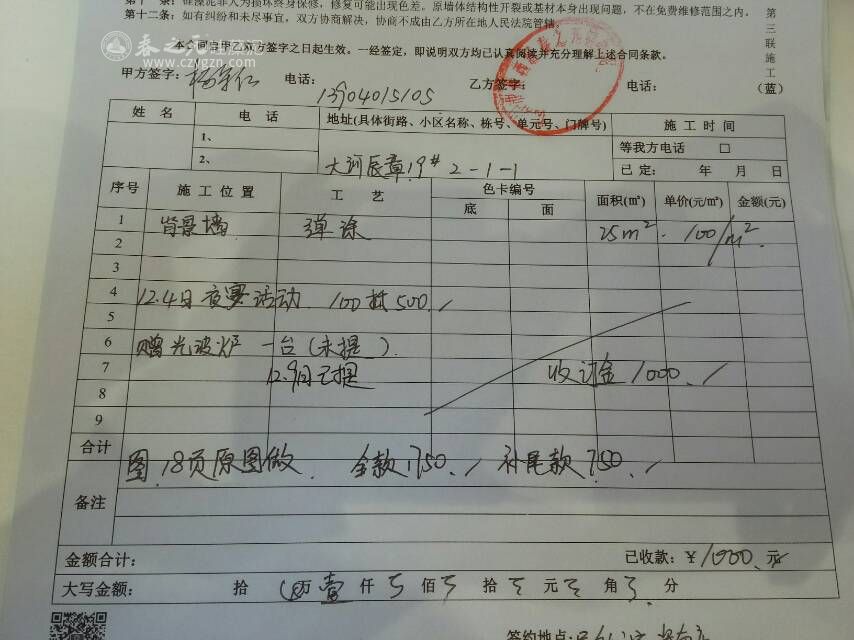 第十二条：如有纠纷和未尽事宜，双方协商解决，协商不成由乙方所在地人民法院管辖。
本合同自甲乙双方签字之日起生效。一经签定，即说明双方均已认真阅读并充分理解上述合同条款。
第三联施工（蓝）
春之元
www.czygzn.com
甲方签字： 电话： 13904015105 乙方签字： 电话：
姓 名 电 话 地址(具体街路、小区名称、栋号、单元号、门牌号) 施 工 时 间
1、 等我方电话 □
2、 大河辰章19# 2-1-1 已定： 年 月 日
序号 施 工 位 置 工 艺 色卡编号 面积(㎡) 单价(元/㎡) 金额(元)
底 面
1 背景墙 弹涂 25m² 100/m²
2
3
4 12.4日夜宴活动 100抵500
5
6 赠光波炉 一台(未提)
7 12.9日已提 收订金1000
8
9
合计 图18页原图做 全款1750 补尾款750
备注
金额合计： 已收款：￥1000 元
大写金额： 拾 万 壹 仟 佰 拾 元 角 分
签约地点：